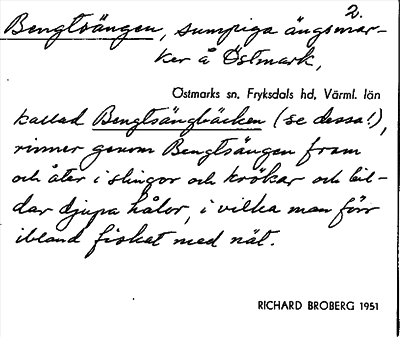 2.
Bengtsängen, sumpiga ängsmar-
ker å Östmark,
Östmarks sn, Fryksdals hd, Värml. län
kallad Bengtsängbäcken (se dessa!),
rinner genom Bengtsängen fram
och åter i slingor och krökar och bil-
dar djupa hålor, i vilka man förr
ibland fiskat med nät.
RICHARD BROBERG 1951